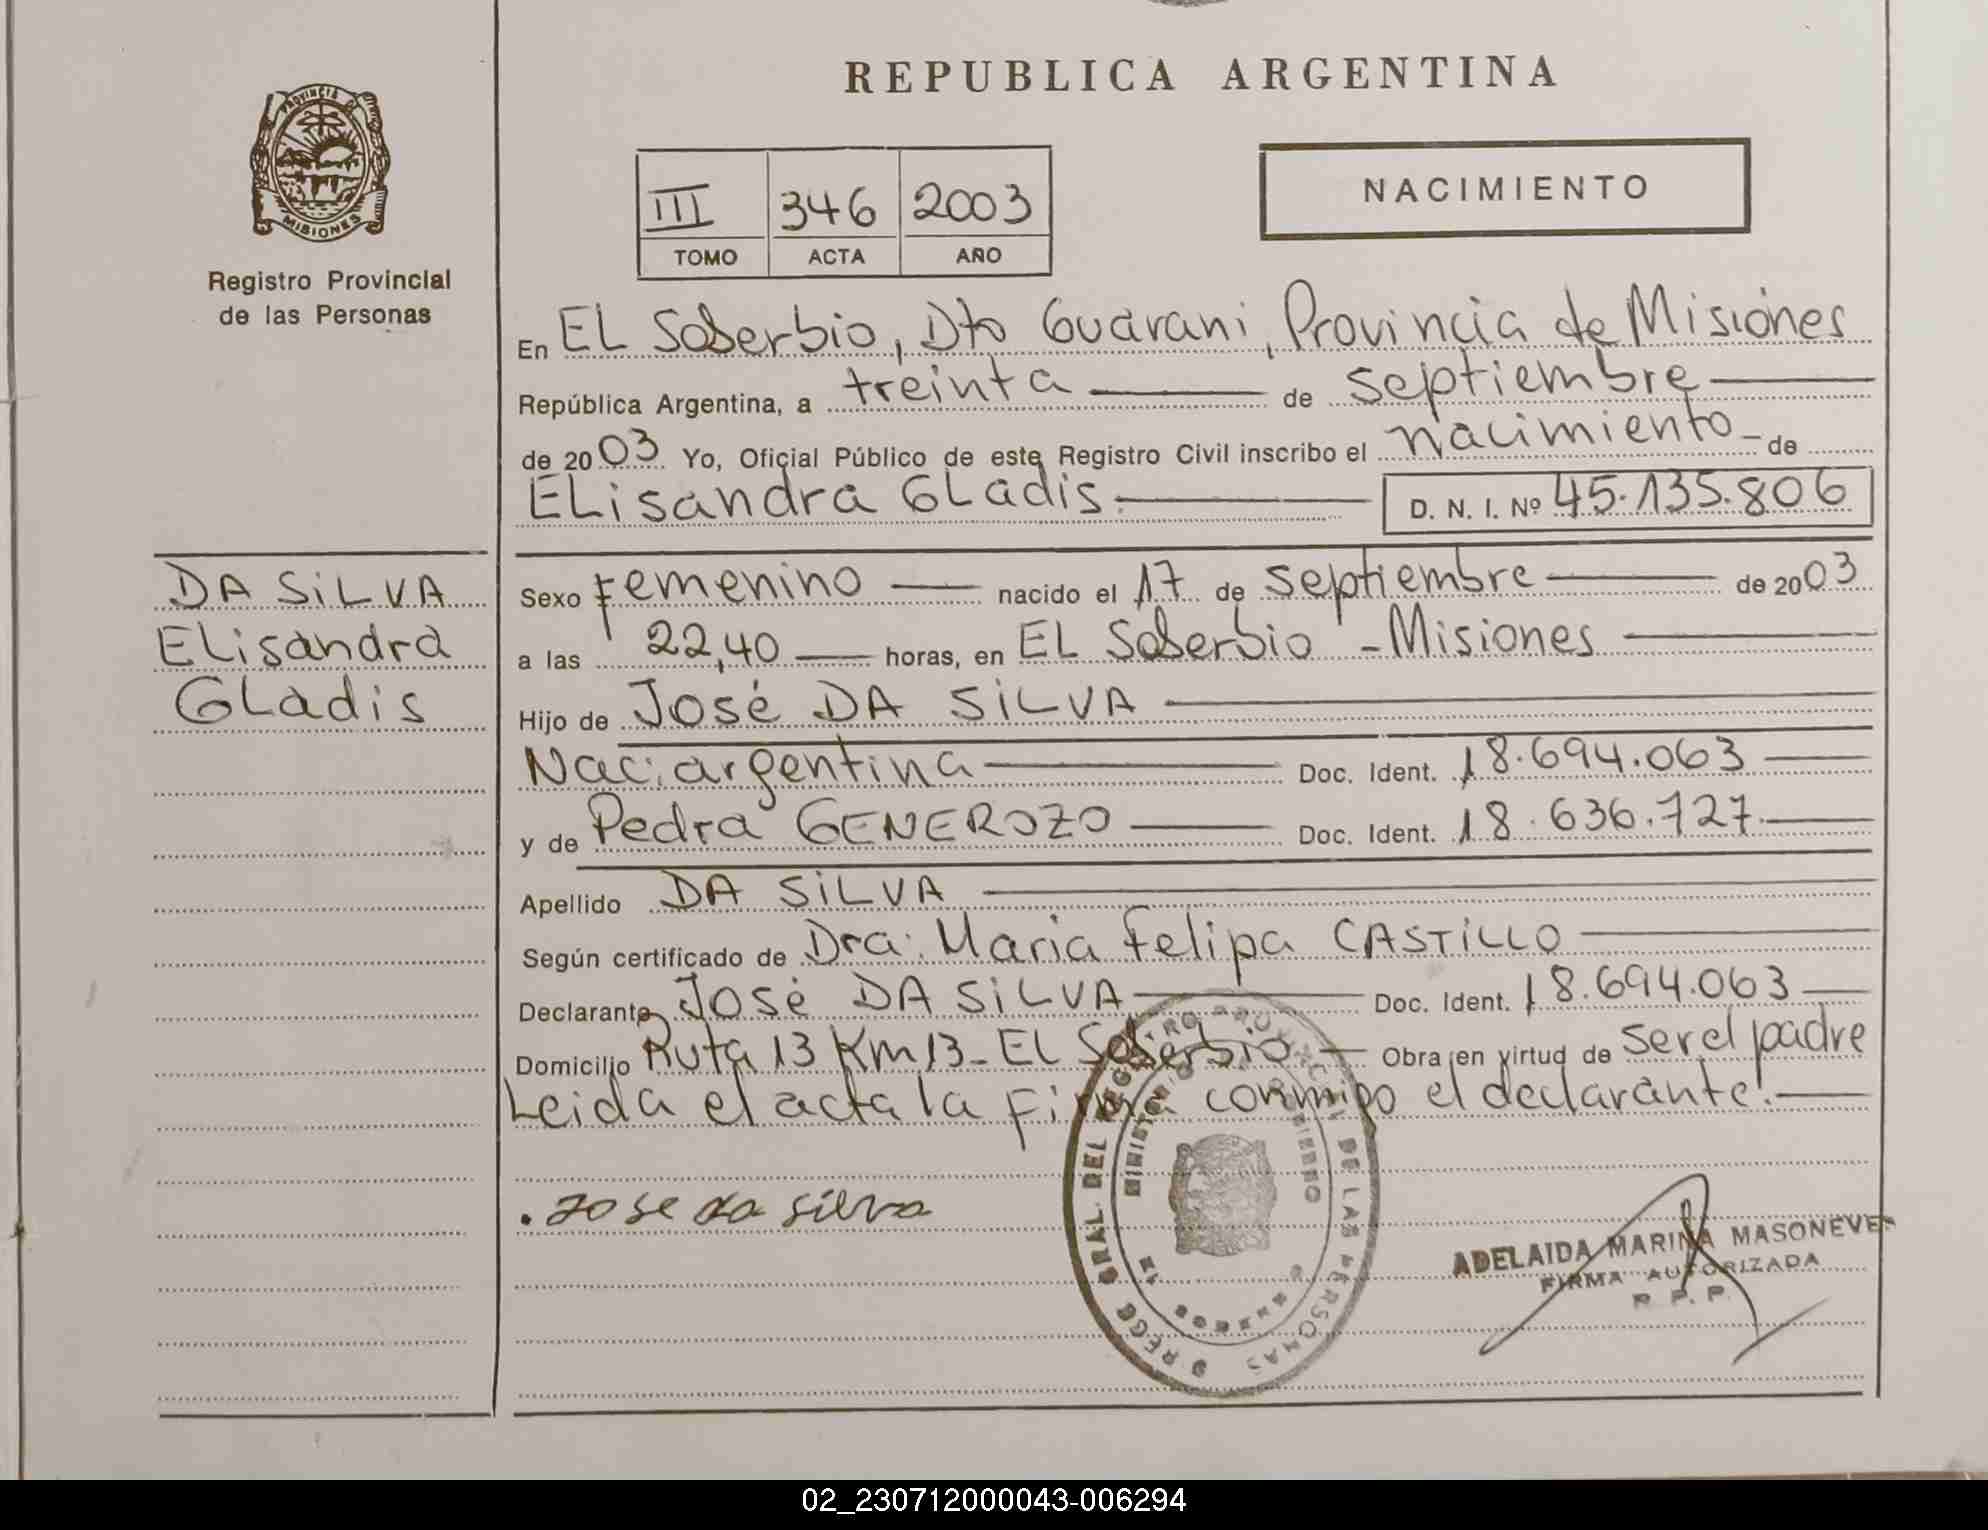 REPUBLICA ARGENTINA
PROVINCIA DE
MISIONES
Registro Provincial
de las Personas
III 346 2003
TOMO ACTA AÑO
NACIMIENTO
En EL Soberbio, Dto Guarani, Provincia de Misiones
República Argentina, a treinta de septiembre
de 2003 Yo, Oficial Público de este Registro Civil inscribo el nacimiento - de
ELisandra GLadis. D. N. I. Nº 45.135.806
DA SiLVA
ELisandra
GLadis
Sexo femenino nacido el 17 de septiembre de 2003
a las 22,40 horas, en EL Soberbio - Misiones
Hijo de José DA SiLVA
Nac: argentina Doc. Ident. 18.694.063
y de Pedra GENEROZO Doc. Ident. 18.636.727.
Apellido DA SiLVA
Según certificado de Dra: Maria Felipa CASTiLLO
Declarante José DA SiLVA Doc. Ident. 18.694.063
Domicilio Ruta 13 Km 13 - EL Soberbio Obra en virtud de ser el padre
Leida el acta la firma conmigo el declarante.
. Jose da silva
REGISTRO PROVINCIAL DE LAS PERSONAS
MINISTERIO DE GOBIERNO
ADELAIDA MARINA MASONEVE
FIRMA AUTORIZADA
R. P. P.
02_230712000043-006294